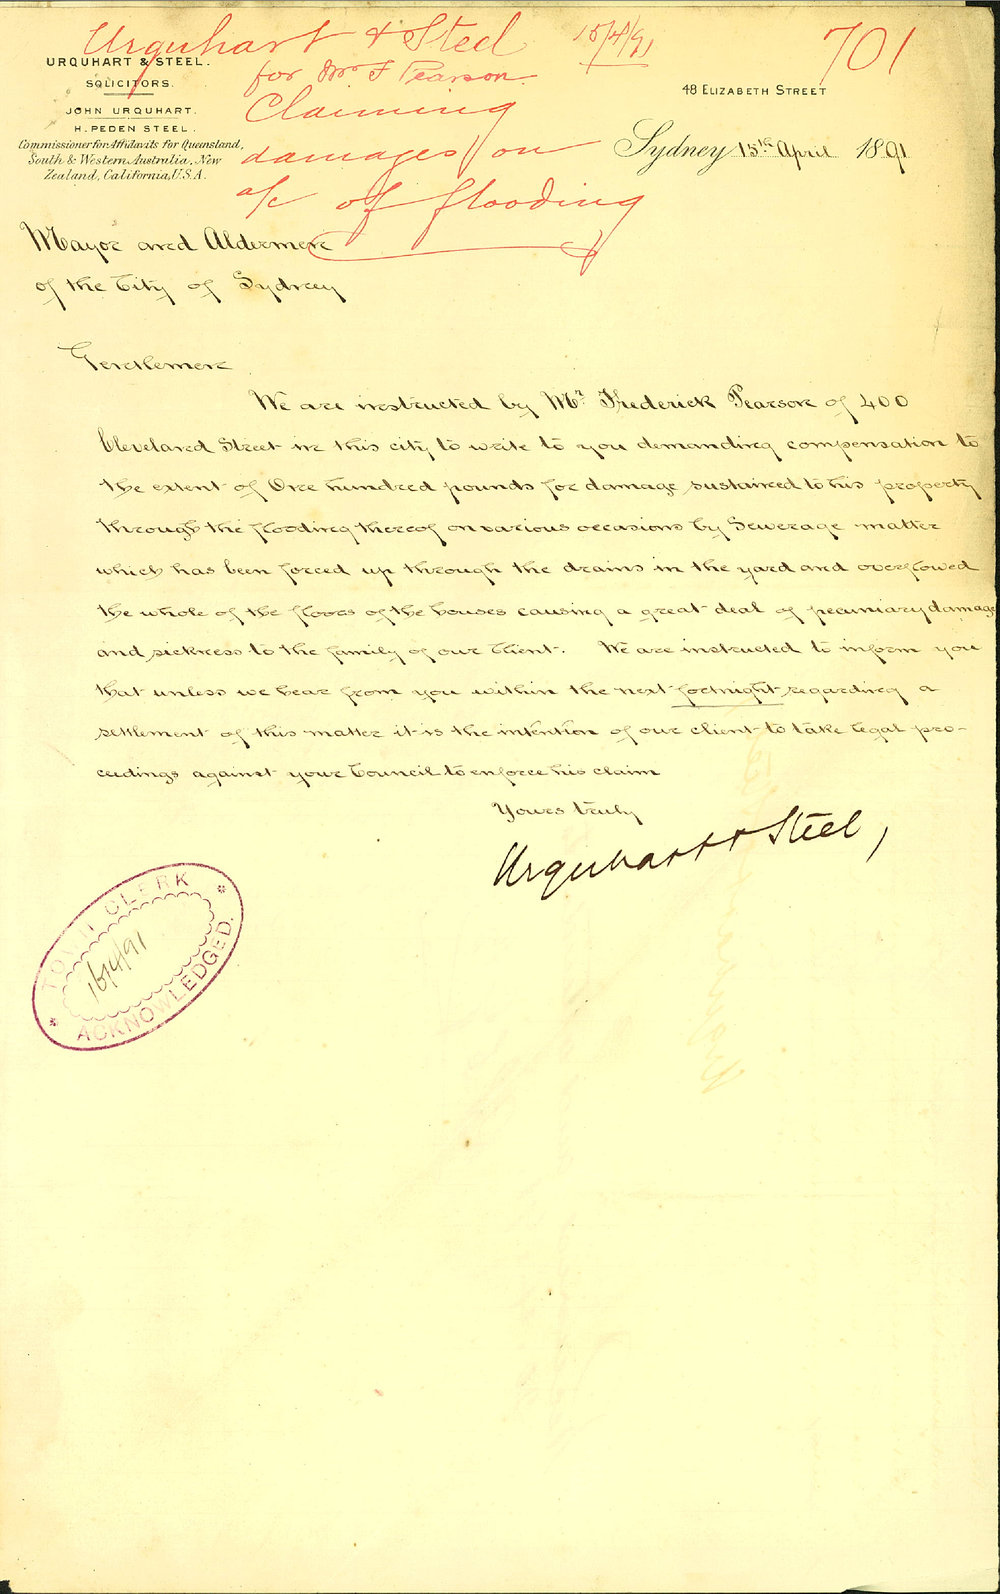 Urquhart & Steel 15/4/91 701
for Mr F Pearson
Claiming
damages on
a/c of flooding
URQUHART & STEEL.
SOLICITORS.
JOHN URQUHART.
H. PEDEN STEEL.
Commissioner for Affidavits for Queensland,
South & Western Australia, New
Zealand, California, U.S.A.
48 ELIZABETH STREET
Sydney 15th April 1891
Mayor and Aldermen
of the City of Sydney
Gentlemen
We are instructed by Mr. Frederick Pearson of 400
Cleveland Street in this city to write to you demanding compensation to
the extent of One hundred pounds for damage sustained to his property
through the flooding thereof on various occasions by Sewerage matter
which has been forced up through the drains in the yard and overflowed
the whole of the floors of the houses causing a great deal of pecuniary damage
and sickness to the family of our client. We are instructed to inform you
that unless we hear from you within the next fortnight regarding a
settlement of this matter it is the intention of our client to take legal pro-
ceedings against your Council to enforce his claim
Yours truly
Urquhart & Steel,
TOWN CLERK
16/4/91
ACKNOWLEDGED.